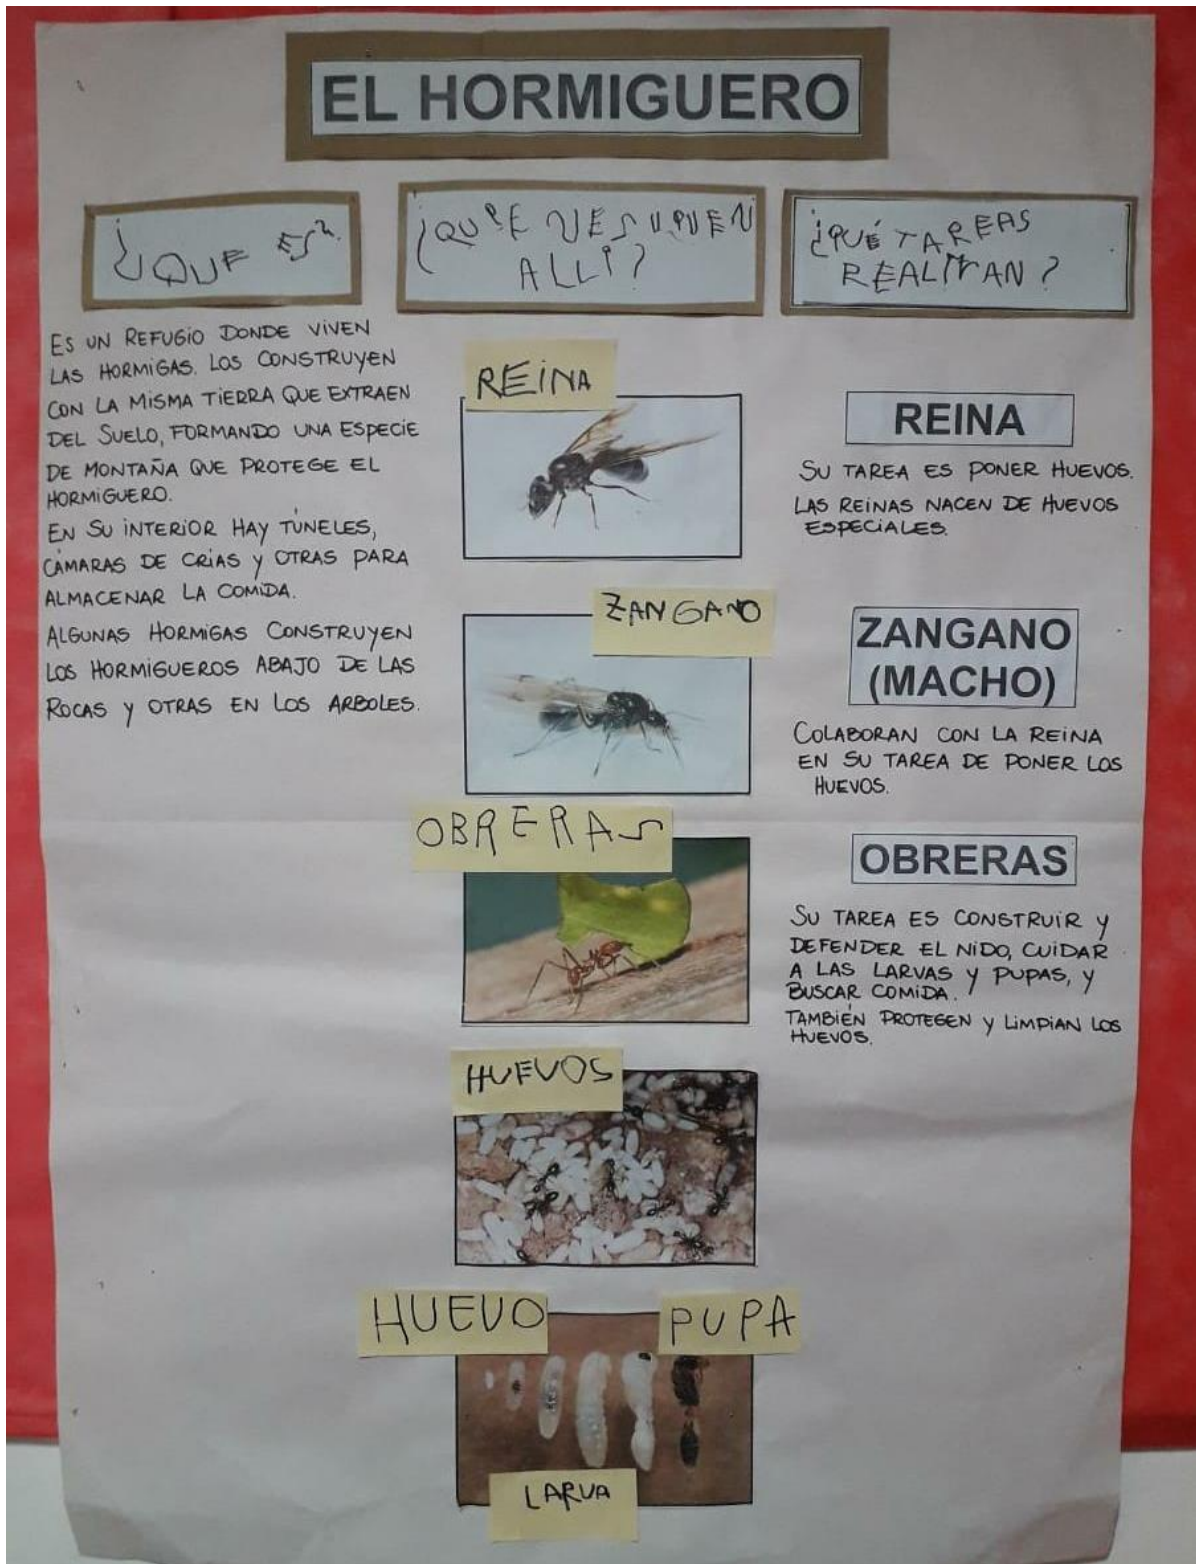 EL HORMIGUERO
¿QUE ES?
ES UN REFUGIO DONDE VIVEN
LAS HORMIGAS. LOS CONSTRUYEN
CON LA MISMA TIERRA QUE EXTRAEN
DEL SUELO, FORMANDO UNA ESPECIE
DE MONTAÑA QUE PROTEGE EL
HORMIGUERO.
EN SU INTERIOR HAY TÚNELES,
CÁMARAS DE CRIAS Y OTRAS PARA
ALMACENAR LA COMIDA.
ALGUNAS HORMIGAS CONSTRUYEN
LOS HORMIGUEROS ABAJO DE LAS
ROCAS Y OTRAS EN LOS ARBOLES.
ALLI?
REINA
ZANGANO
OBRERAS
HUEVOS
HUEVO
PUPA
LARVA
¿QUÉ TAREAS
REALIZAN?
REINA
SU TAREA ES PONER HUEVOS.
LAS REINAS NACEN DE HUEVOS
ESPECIALES.
ZANGANO
(MACHO)
COLABORAN CON LA REINA
EN SU TAREA DE PONER LOS
HUEVOS.
OBRERAS
SU TAREA ES CONSTRUIR Y
DEFENDER EL NIDO, CUIDAR
A LAS LARVAS Y PUPAS, Y
BUSCAR COMIDA.
TAMBIÉN PROTEGEN Y LIMPIAN LOS
HUEVOS.